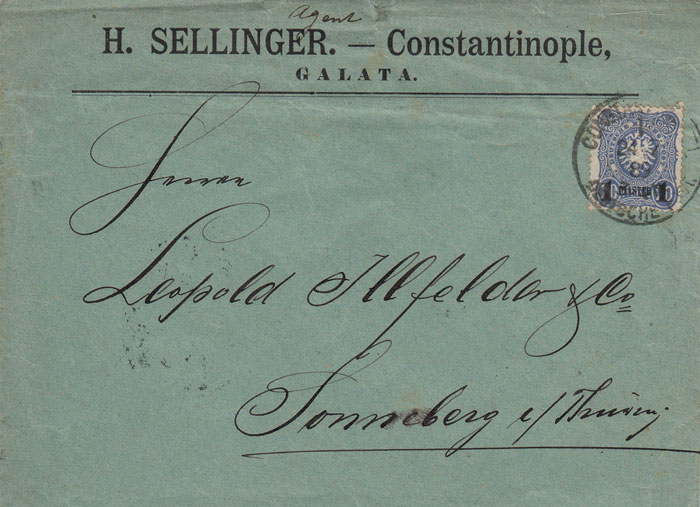 Agent
H. SELLINGER. — Constantinople,
GALATA.
1 PIASTER 1
24
89
DEUTSCHE
Herren
Leopold Illfelder & Co
Sonneberg i/Thüring